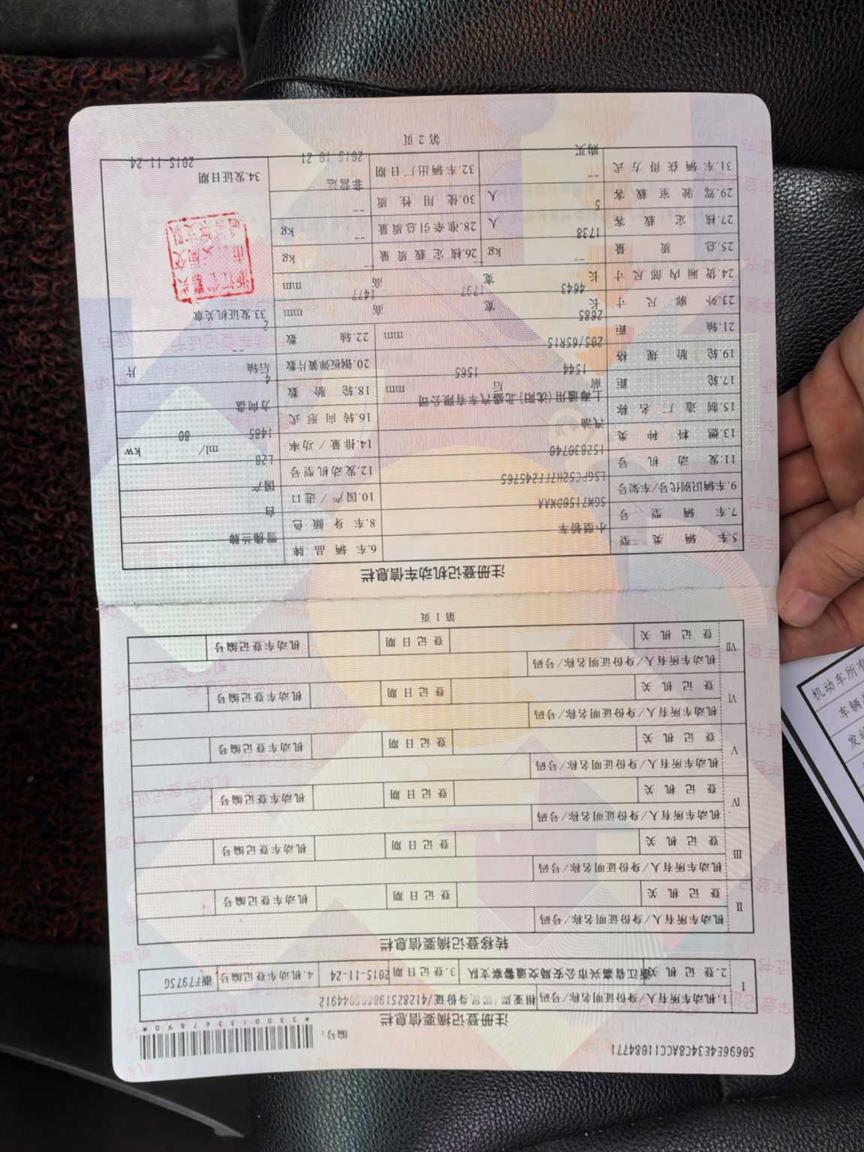 50696E4E34C8ACC11084771
编号:
*330013367890*
注册登记摘要信息栏
I 1.机动车所有人/身份证明名称/号码
2.登记机关 浙江省嘉兴市公安局交通警察支队 3.登记日期 2015-11-24 4.机动车登记编号 浙F797SG
转移登记摘要信息栏
II 机动车所有人/身份证明名称/号码
登记机关 登记日期 机动车登记编号
III 机动车所有人/身份证明名称/号码
登记机关 登记日期 机动车登记编号
IV 机动车所有人/身份证明名称/号码
登记机关 登记日期 机动车登记编号
V 机动车所有人/身份证明名称/号码
登记机关 登记日期 机动车登记编号
VI 机动车所有人/身份证明名称/号码
登记机关 登记日期 机动车登记编号
VII 机动车所有人/身份证明名称/号码
登记机关 登记日期 机动车登记编号
第 1 页
注册登记机动车信息栏
5.车辆类型 小型轿车 6.车辆品牌 雪佛兰牌
7.车辆型号 SGM7150DMAA 8.车身颜色 白
9.车辆识别代号/车架号 LSGPC52H7FF245765 10.国产/进口 国产
11.发动机号 152830740 12.发动机型号 L2B
13.燃料种类 汽油 14.排量/功率 1485 ml/ 80 kw
15.制造厂名称 上海通用(沈阳)北盛汽车有限公司 16.转向形式 方向盘
17.轮距 前 1544 后 1565 mm 18.轮胎数 4
19.轮胎规格 205/65R15 20.钢板弹簧片数 后轴 -- 片
21.轴距 2685 mm 22.轴数 2
23.外廓尺寸 长 4643 宽 1797 高 1477 mm 33.发证机关章
24.货厢内部尺寸 长 -- 宽 高 mm
25.总质量 1738 kg 26.核定载质量 -- kg
27.核定载客 5 人 28.准牵引总质量 -- kg
29.驾驶室载客 -- 人 30.使用性质 非营运
31.车辆获得方式 购买 32.车辆出厂日期 2015-10-21 34.发证日期 2015-11-24
第 2 页
机动车所有